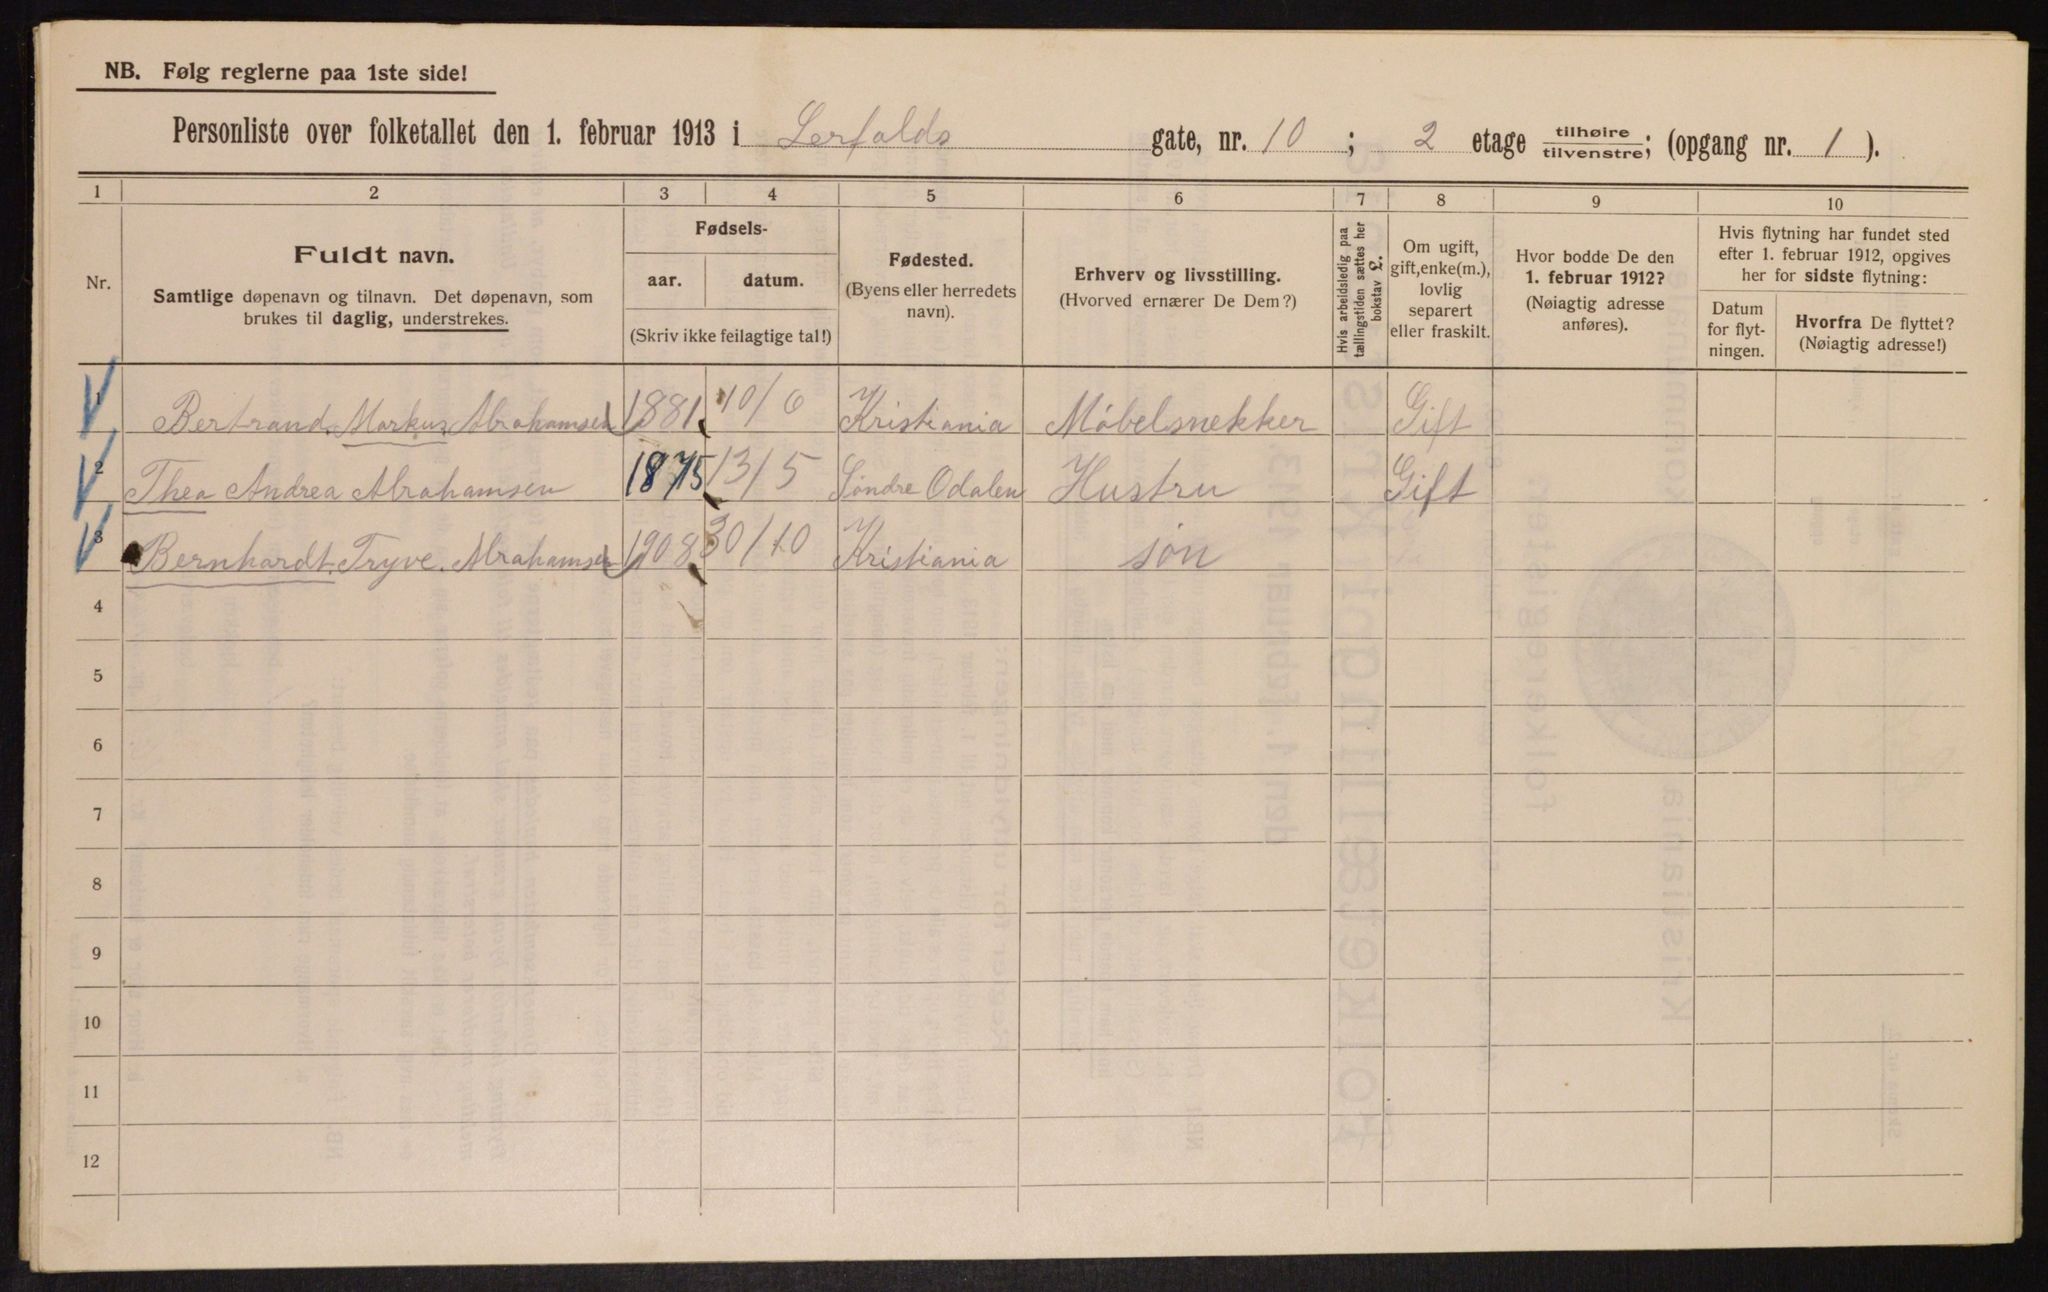 NB. Følg reglerne paa 1ste side!
Personliste over folketallet den 1. februar 1913 i Lerfalds gate, nr. 10 ; 2 etage tilhøire tilvenstre; (opgang nr. 1 ).
1 2 3 4 5 6 7 8 9 10
Nr.
Fuldt navn.
Samtlige døpenavn og tilnavn. Det døpenavn, som
brukes til daglig, understrekes.
Fødsels-
aar. datum.
(Skriv ikke feilagtige tal!)
Fødested.
(Byens eller herredets
navn).
Erhverv og livsstilling.
(Hvorved ernærer De Dem?)
Hvis arbeidsledig paa
tællingstiden sættes her
bokstav L.
Om ugift,
gift, enke(m.),
lovlig
separert
eller fraskilt.
Hvor bodde De den
1. februar 1912?
(Nøiagtig adresse
anføres).
Hvis flytning har fundet sted
efter 1. februar 1912, opgives
her for sidste flytning:
Datum
for flyt-
ningen.
Hvorfra De flyttet?
(Nøiagtig adresse!)
1 Bertrand. Markus. Abrahamsen 1881 10/6 Kristiania Møbelsnekker Gift
2 Thea Andrea Abrahamsen 1875 13/5 Søndre Odalen Hustru Gift
3 Bernhardt. Tryve. Abrahamsen 1908 30/10 Kristiania søn
4
5
6
7
8
9
10
11
12